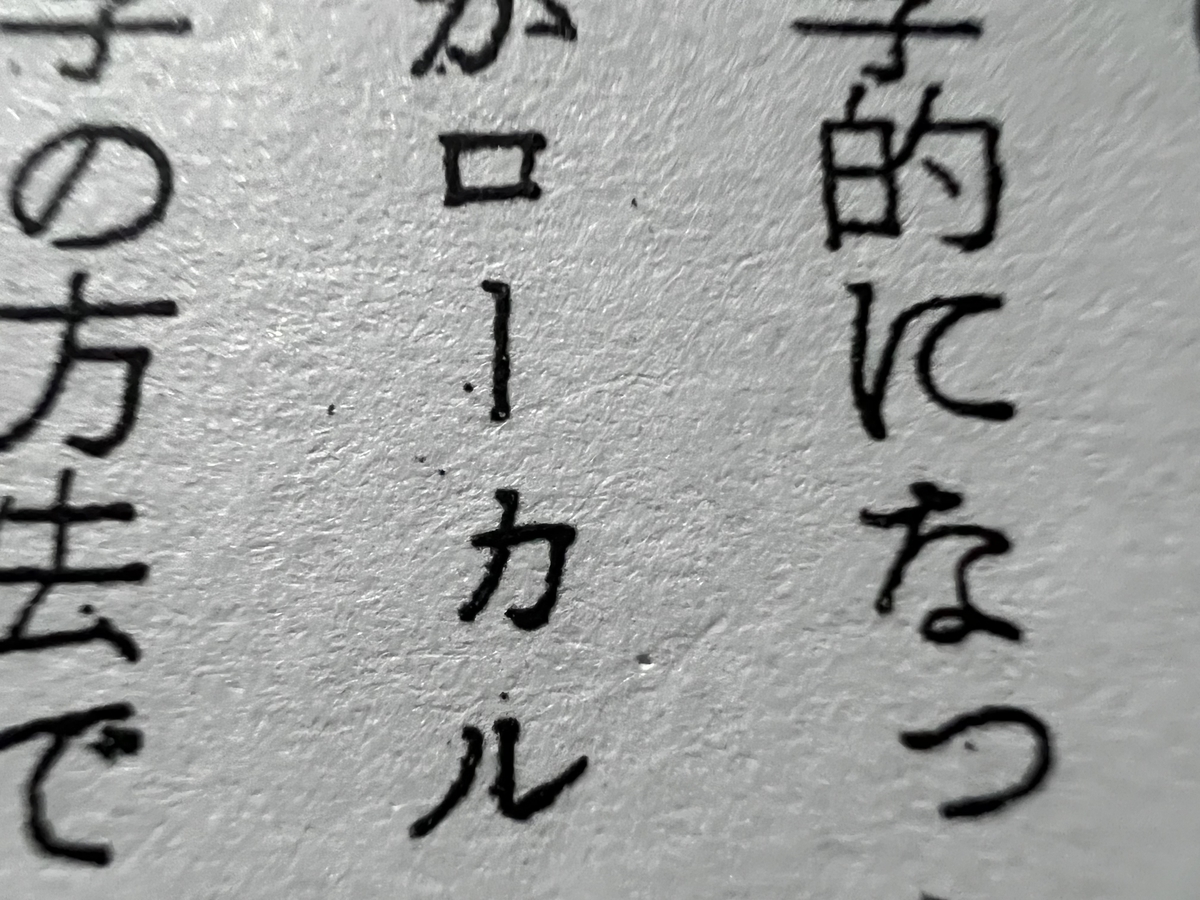 的になつ
がローカル
の方法で